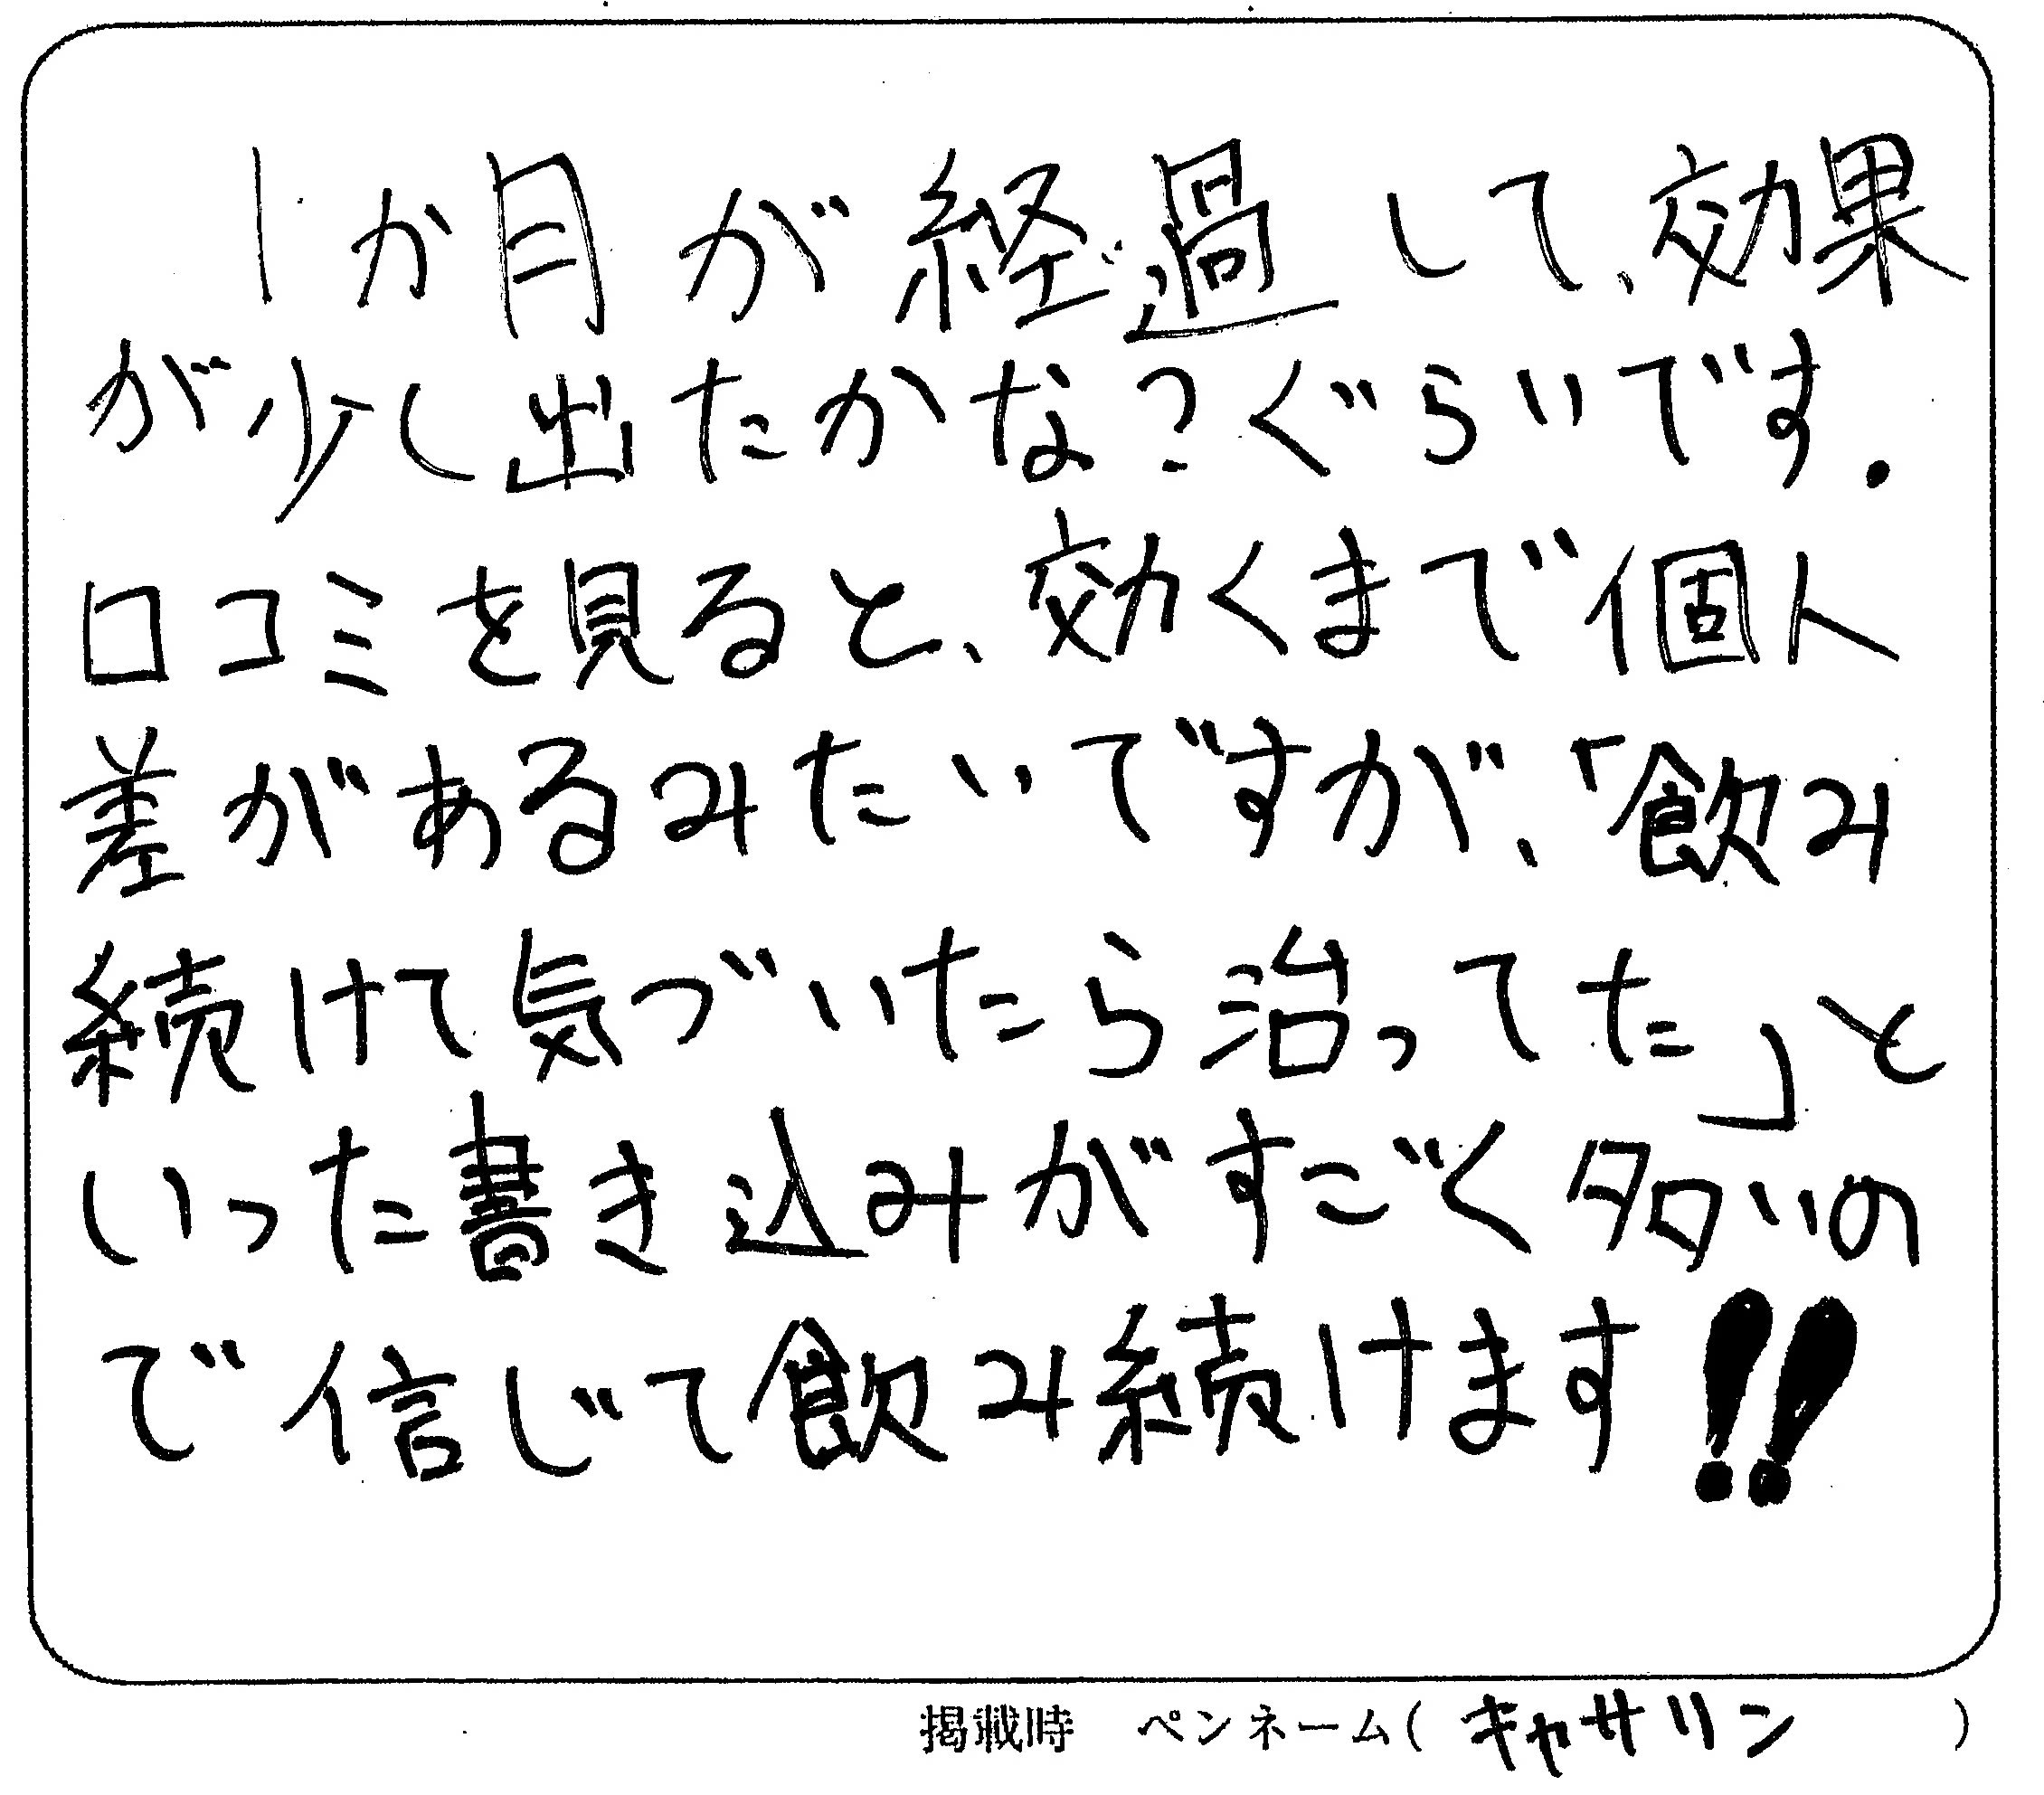 1か月が経過して、効果
が少し出たかな?ぐらいです.
口コミを見ると、効くまで個人
差があるみたいですが、「飲み
続けて気づいたら治ってた」と
いった書き込みがすごく多いの
で信じて飲み続けます!!
掲載時 ペンネーム(キャサリン)